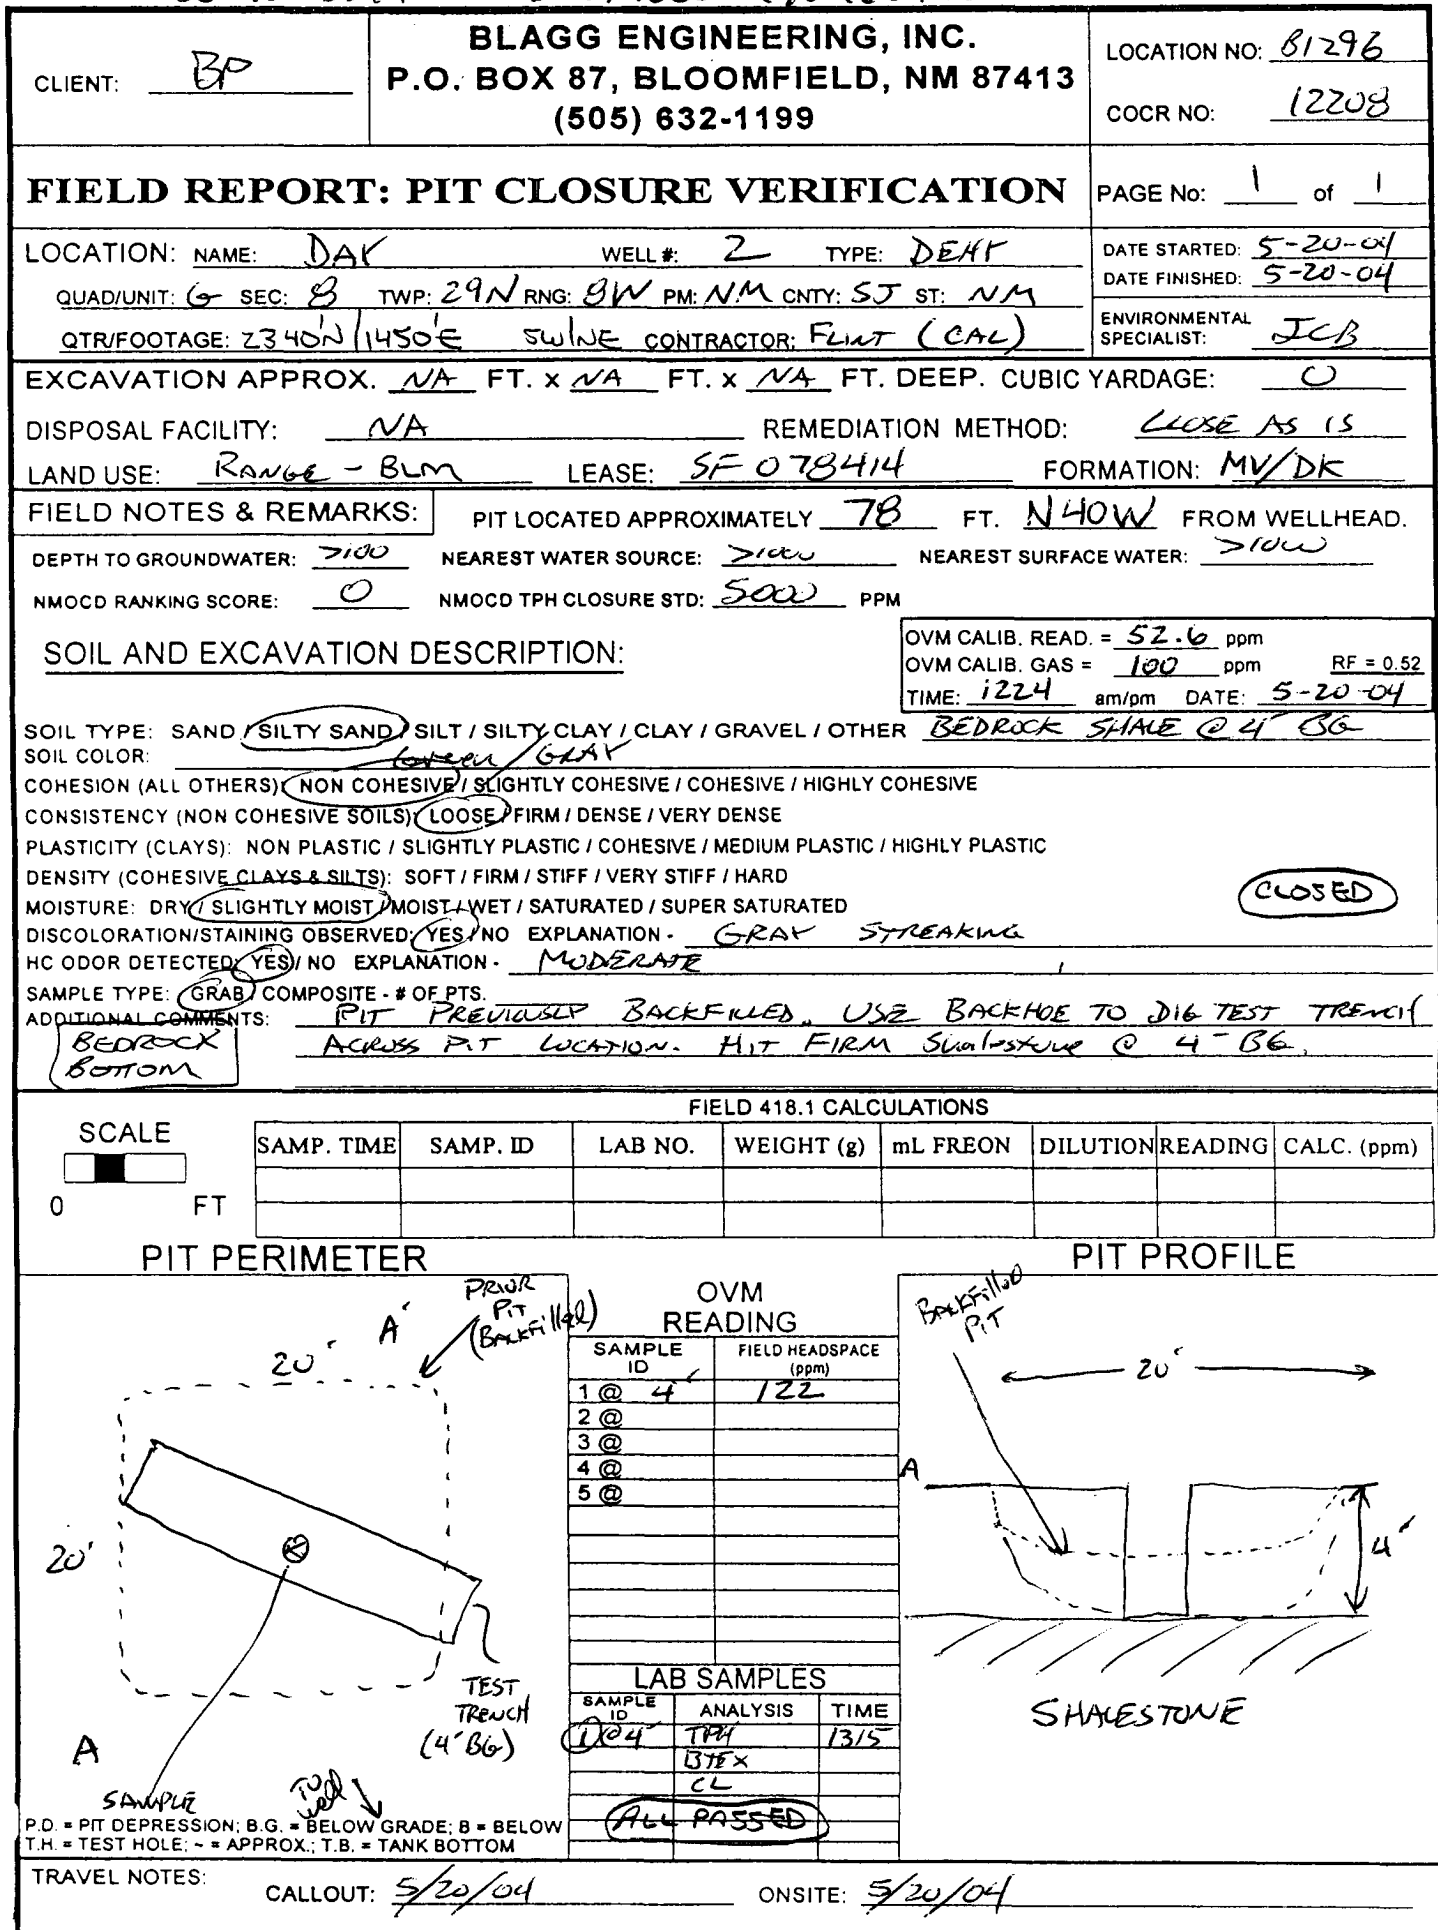 BLAGG ENGINEERING, INC.
P.O. BOX 87, BLOOMFIELD, NM 87413
(505) 632-1199
CLIENT: BP
LOCATION NO: B1296
COCR NO: 12208
FIELD REPORT: PIT CLOSURE VERIFICATION
PAGE No: 1 of 1
LOCATION: NAME: DAY WELL #: 2 TYPE: DEHY
DATE STARTED: 5-20-04
DATE FINISHED: 5-20-04
QUAD/UNIT: G SEC: 8 TWP: 29N RNG: 8W PM: NM CNTY: SJ ST: NM
QTR/FOOTAGE: 2340'N/1450'E SW/NE CONTRACTOR: FLINT (CAL)
ENVIRONMENTAL SPECIALIST: JCB
EXCAVATION APPROX. NA FT. x NA FT. x NA FT. DEEP. CUBIC YARDAGE: 0
DISPOSAL FACILITY: NA REMEDIATION METHOD: CLOSE AS IS
LAND USE: RANGE - BLM LEASE: SF 078414 FORMATION: MV/DK
FIELD NOTES & REMARKS: PIT LOCATED APPROXIMATELY 78 FT. N40W FROM WELLHEAD.
DEPTH TO GROUNDWATER: >100 NEAREST WATER SOURCE: >1000 NEAREST SURFACE WATER: >1000
NMOCD RANKING SCORE: 0 NMOCD TPH CLOSURE STD: 5000 PPM
SOIL AND EXCAVATION DESCRIPTION:
OVM CALIB. READ. = 52.6 ppm
OVM CALIB. GAS = 100 ppm RF = 0.52
TIME: 1224 am/pm DATE: 5-20-04
SOIL TYPE: SAND / SILTY SAND / SILT / SILTY CLAY / CLAY / GRAVEL / OTHER BEDROCK SHALE @ 4' BG
SOIL COLOR: Green / GRAY
COHESION (ALL OTHERS): NON COHESIVE / SLIGHTLY COHESIVE / COHESIVE / HIGHLY COHESIVE
CONSISTENCY (NON COHESIVE SOILS): LOOSE / FIRM / DENSE / VERY DENSE
PLASTICITY (CLAYS): NON PLASTIC / SLIGHTLY PLASTIC / COHESIVE / MEDIUM PLASTIC / HIGHLY PLASTIC
DENSITY (COHESIVE CLAYS & SILTS): SOFT / FIRM / STIFF / VERY STIFF / HARD
CLOSED
MOISTURE: DRY / SLIGHTLY MOIST / MOIST / WET / SATURATED / SUPER SATURATED
DISCOLORATION/STAINING OBSERVED: YES / NO EXPLANATION - GRAY STREAKING
HC ODOR DETECTED: YES / NO EXPLANATION - MODERATE
SAMPLE TYPE: GRAB / COMPOSITE - # OF PTS.
ADDITIONAL COMMENTS: PIT PREVIOUSLY BACKFILLED. USE BACKHOE TO DIG TEST TRENCH
ACROSS PIT LOCATION. HIT FIRM Shalestone @ 4' BG.
BEDROCK
BOTTOM
FIELD 418.1 CALCULATIONS
SCALE
0 FT
SAMP. TIME SAMP. ID LAB NO. WEIGHT (g) mL FREON DILUTION READING CALC. (ppm)
PIT PERIMETER
PRIOR
PIT
(BACKFilled)
A'
20'
20'
A
SAMPLE
TO
well
TEST
TRENCH
(4' BG)
P.D. = PIT DEPRESSION; B.G. = BELOW GRADE; B = BELOW
T.H. = TEST HOLE; ~ = APPROX.; T.B. = TANK BOTTOM
OVM
READING
SAMPLE ID FIELD HEADSPACE (ppm)
1 @ 4' 122
2 @
3 @
4 @
5 @
LAB SAMPLES
SAMPLE ID ANALYSIS TIME
1 @ 4' TPH 1315
BTEX
CL
ALL PASSED
PIT PROFILE
BACKFilled
PIT
20'
A
A'
4'
SHALESTONE
TRAVEL NOTES:
CALLOUT: 5/20/04 ONSITE: 5/20/04